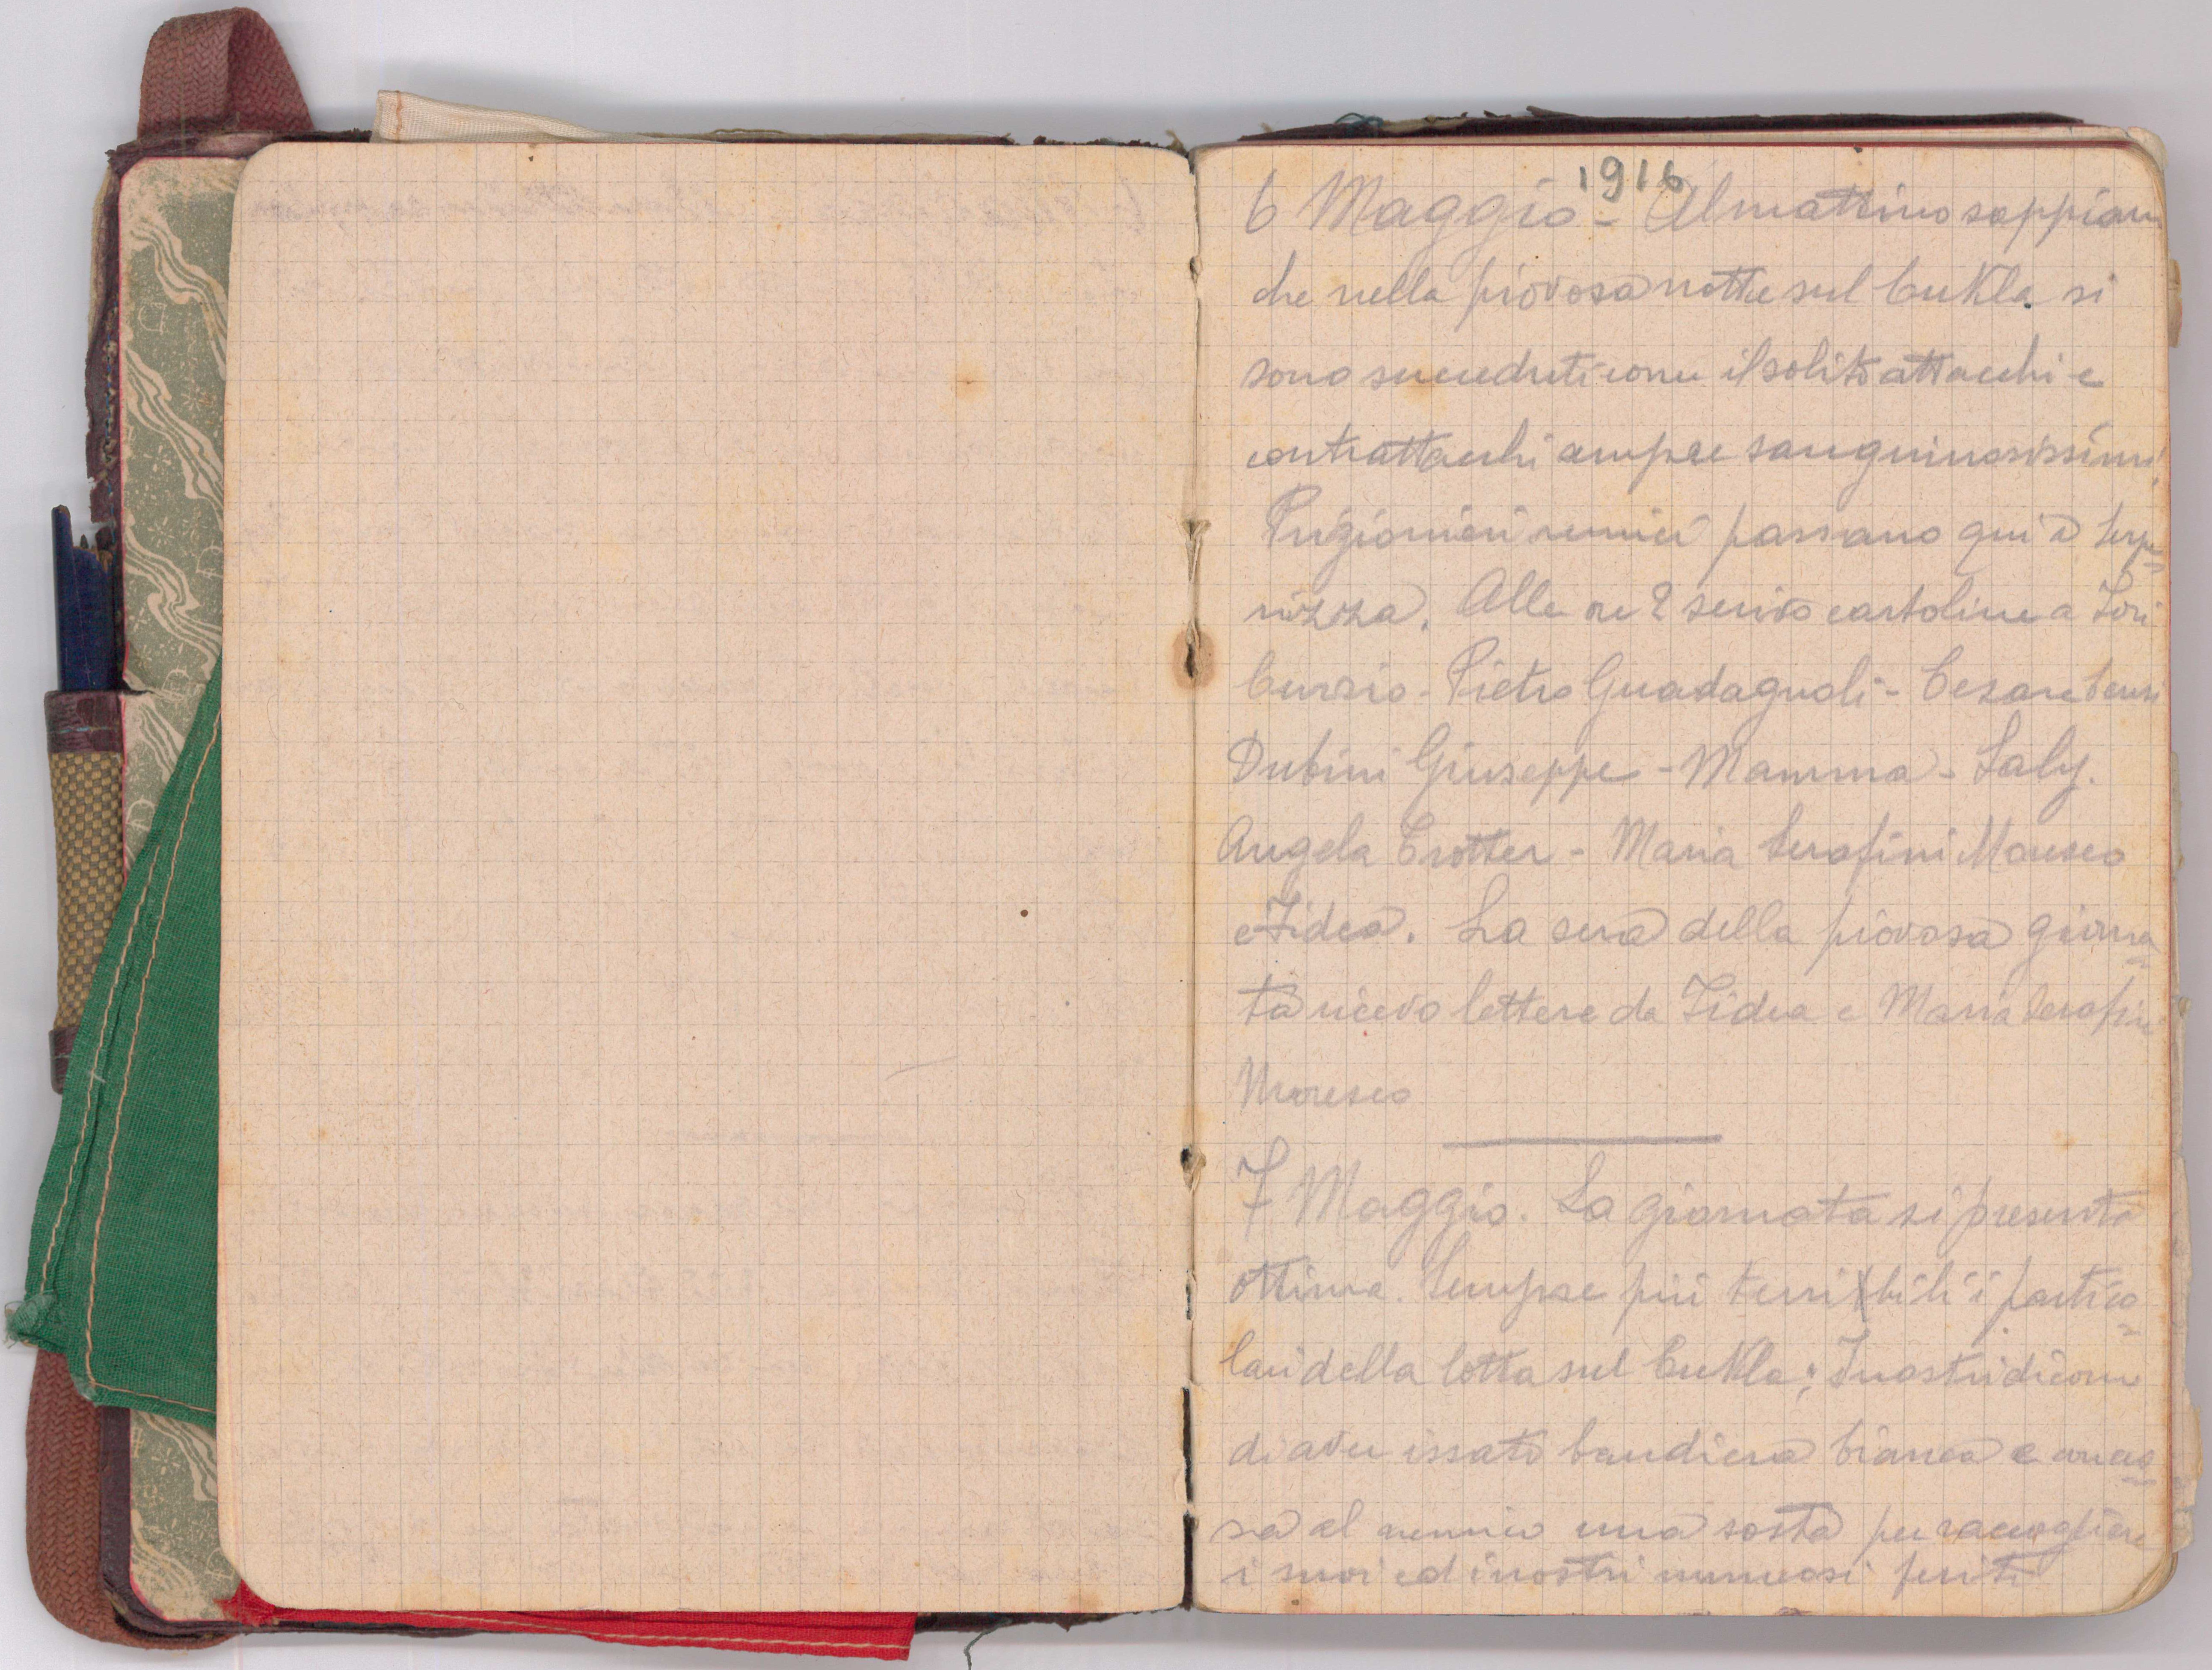 1916
6 Maggio - Al mattino sappiam
che nella piovosa notte sul Cukla si
sono succeduti come il solito attacchi e
contrattacchi sempre sanguinosissimi
Prigionieri nemici passano qui a Serpe=
nizza. Alle ore 2 scrivo cartoline a
Curzio - Pietro Guadagnoli - Cesare
Dubini Giuseppe - Mamma - Laly.
Angela Trotter - Maria Serafini Moresco
e Fidea. La sera della piovosa giorna=
ta ricevo lettere da Fidea e Maria Serafini
Moresco
7 Maggio. La giornata si presenta
ottima. Sempre più terribili i partico=
lari della lotta sul Cukla; I nostri dicono
di aver issato bandiera bianca e conces=
sa al nemico una sosta per raccogliere
i suoi ed i nostri numerosi feriti